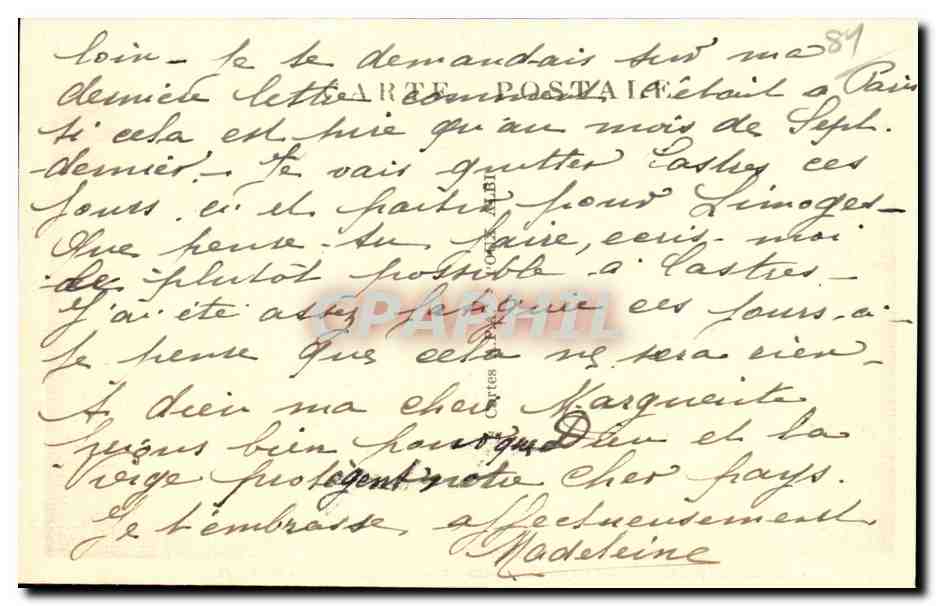 84
loin - Je te demandais sur ma
CARTE POSTALE
dernière lettre comment c'était à Paris
si cela est pire qu'au mois de Sept.
dernier. - Je vais quitter Castres ces
jours ci et partir pour Limoges -
Que pense-tu faire, ecris-moi
le plutôt possible à Castres -
J'ai été assez fatiguée ces jours-ci
Je pense que cela ne sera rien -
A dieu ma chere Marguerite
prions bien pour que Dieu et la
Vierge protègent notre cher pays.
Je t'embrasse affectueusement
Madeleine
Cartes POUX, ALBI
CPAPHIL